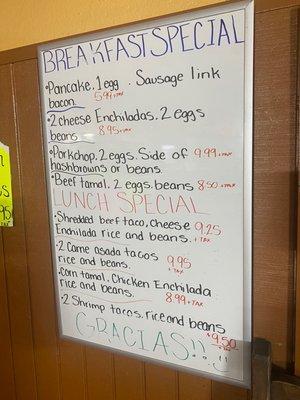 BREAKFAST SPECIAL
•Pancake. 1 egg. Sausage link
bacon. 5.99 +TAX
•2 cheese Enchiladas. 2 eggs
beans 8.95 +TAX
•Porkchop. 2 eggs. Side of 9.99 +TAX
hashbrowns or beans.
•Beef tamal. 2 eggs. beans 8.50 +TAX
LUNCH SPECIAL
•Shredded beef taco, cheese 9.25
Enchilada rice and beans. +TAX
•2 Carne asada tacos 9.95
rice and beans. +TAX
•Corn tamal. Chicken Enchilada
rice and beans. 8.99 +TAX
•2 Shrimp tacos. rice and beans
$9.50
+TAX
GRACIAS!! :)